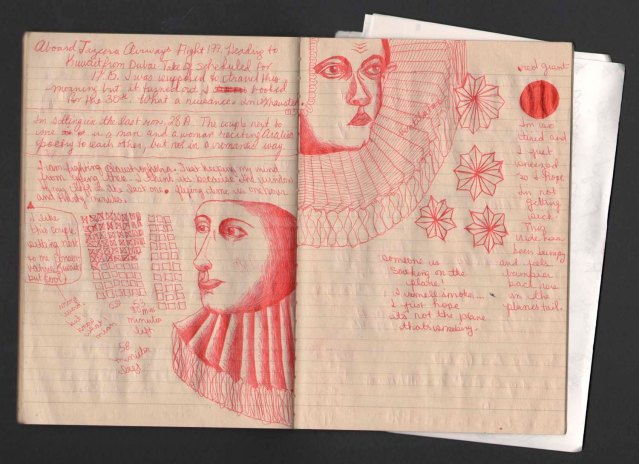 Aboard Jazeera Airways Flight 177. Heading to
Kuwait from Dubai. Take off scheduled for
17:15. I was supposed to attend this
morning but it turned out I booked
for the 30th. What a nuisance. I'm exhausted.
I'm sitting in the last row, 28 D. The couple next to
me is a man and a woman reciting Arabic
poetry to each other, but not in a romantic way.
I am fighting claustrophobia. Just keeping my mind
from going there. I think its because the window
to my left is the last one. flying time is one hour
and thirty minutes.
I like
the couple
talking next
to me.
but
know
what I
mean
minutes
left
58
minutes
red giant
I'm so
tired and
I just
sneezed
so I hope
I'm not
getting
sick.
This
ride has
been bumpy
and feels
bumpier
back here
in the
planes tail.
someone is
Smoking on the
plane!
I smell smoke...
I just hope
its not the plane
thats smoking.